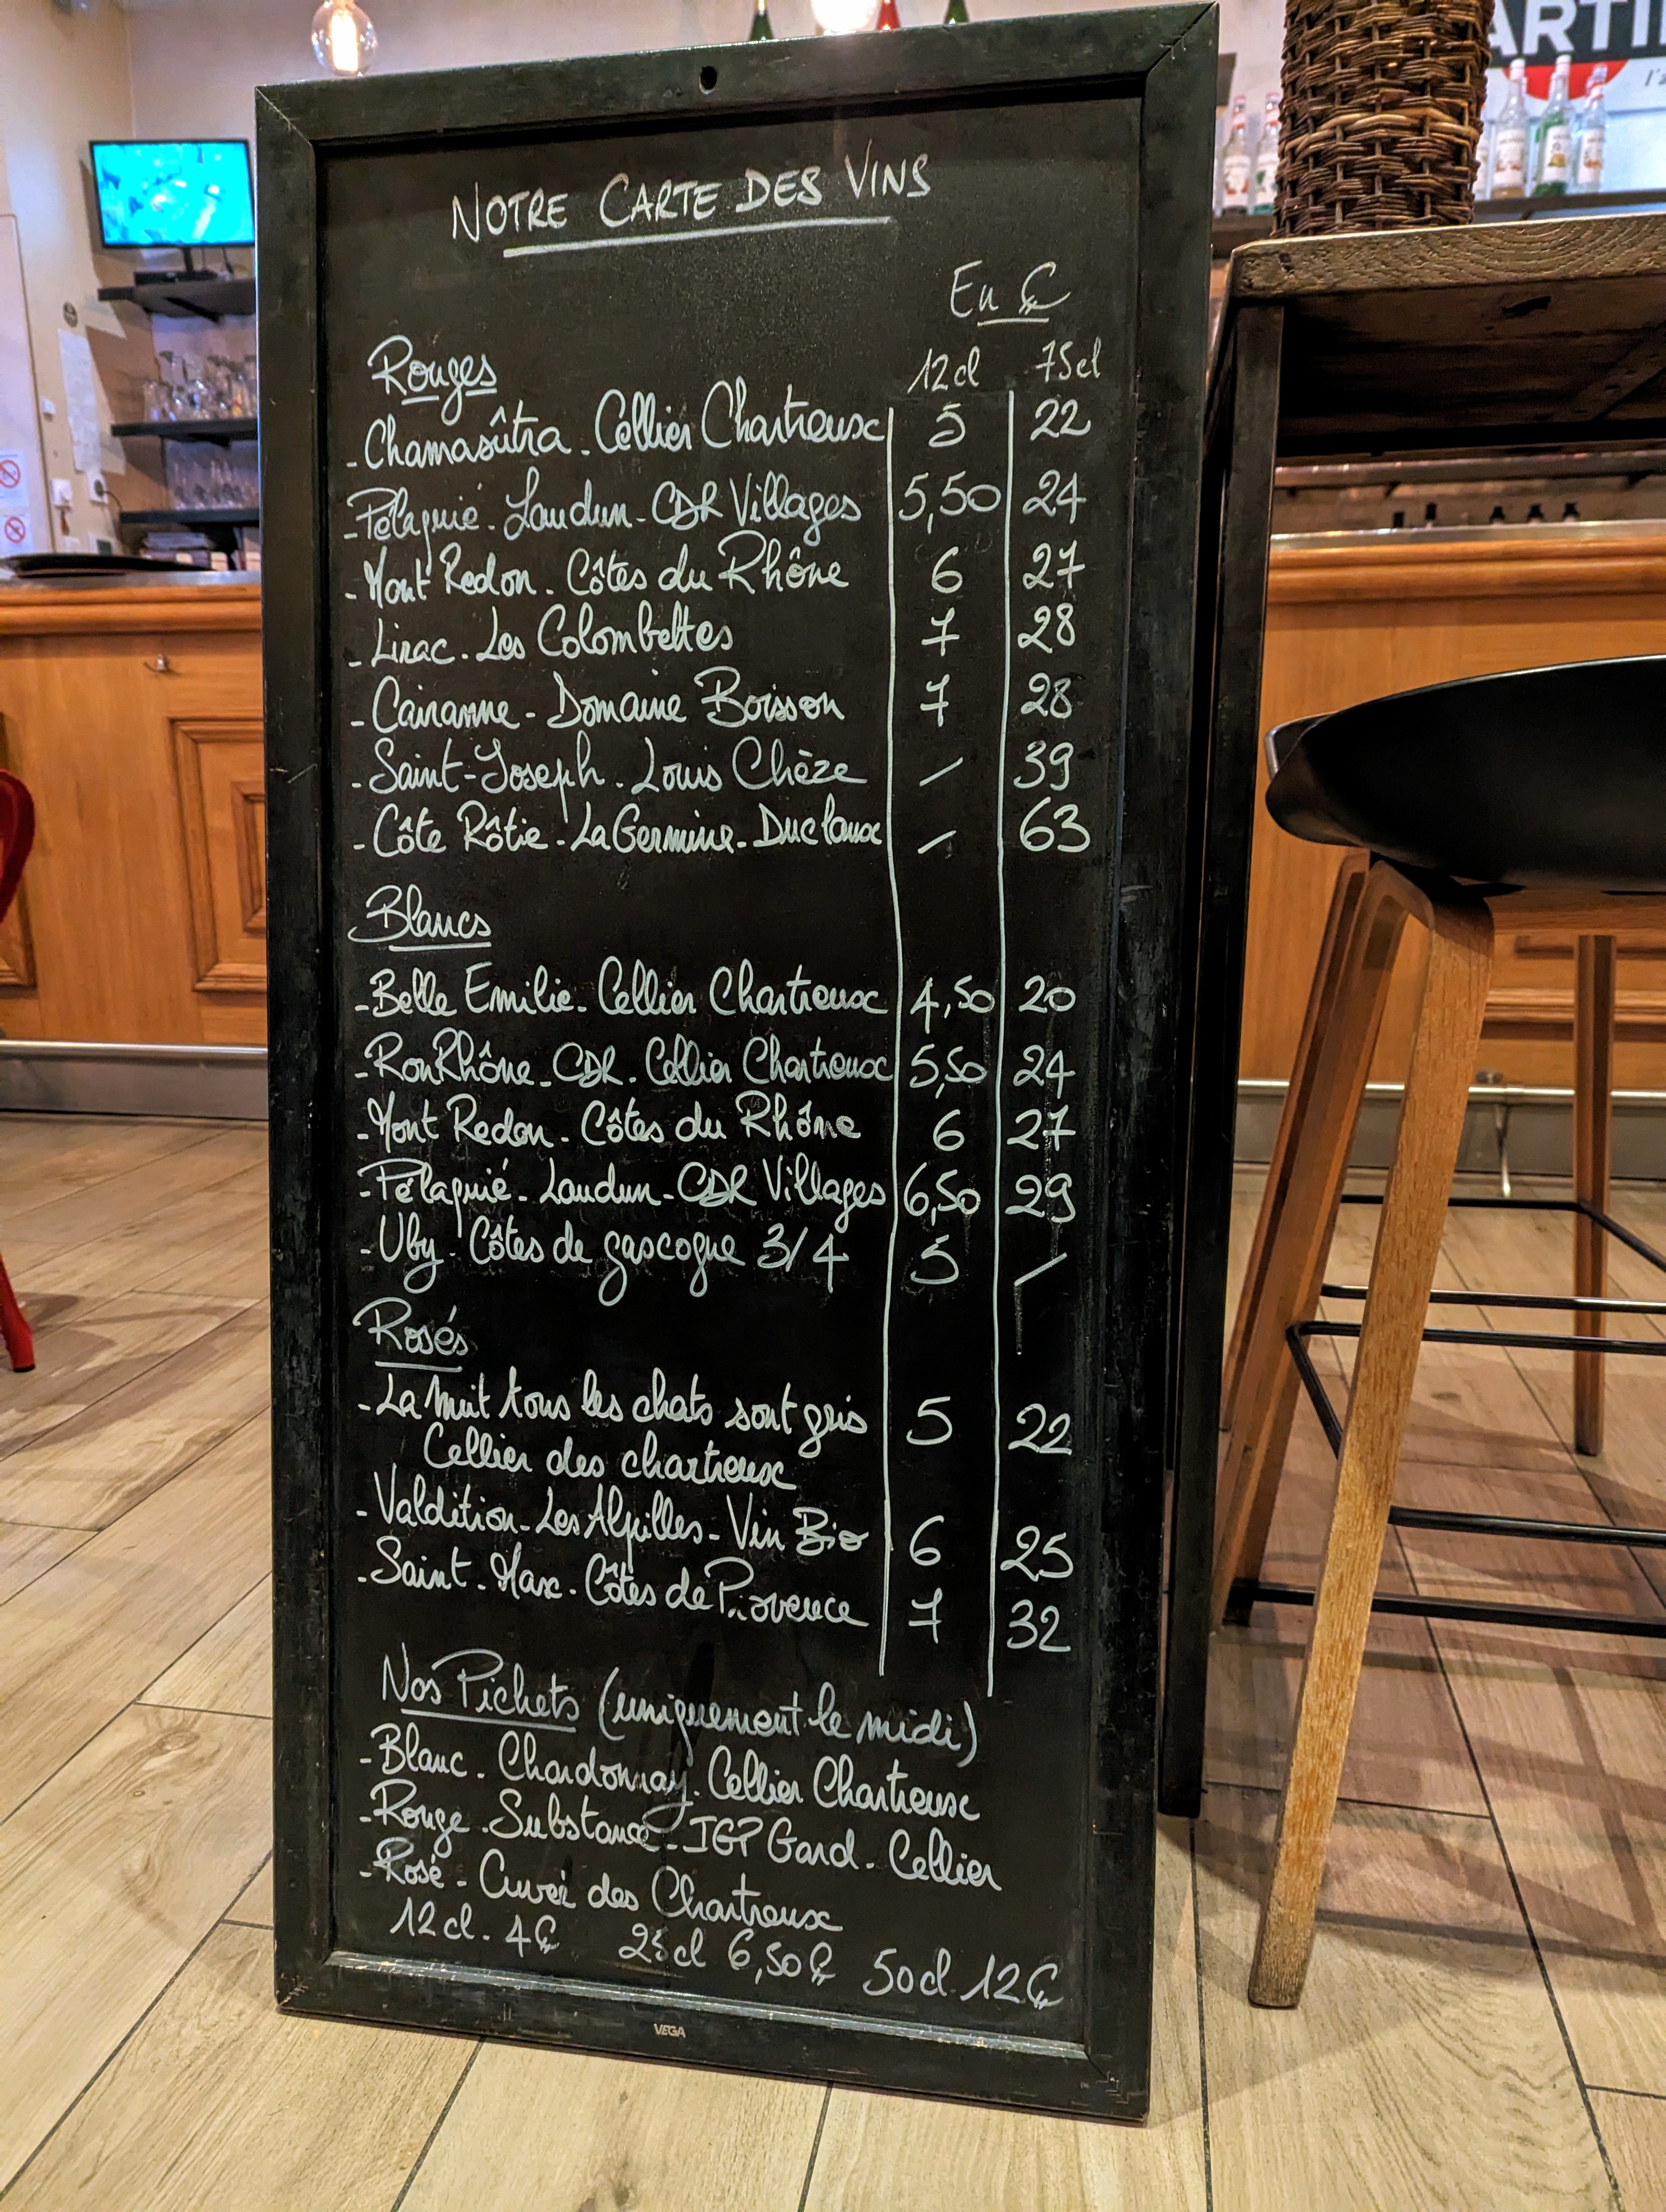 ARTI
l'a
NOTRE CARTE DES VINS
En €
Rouges 12cl 75cl
- Chamasûtra. Cellier Chartreux 5 22
- Pélaquié. Laudun. CDR Villages 5,50 24
- Mont Redon. Côtes du Rhône 6 27
- Lirac. Les Colombettes 7 28
- Cairanne - Domaine Boisson 7 28
- Saint-Joseph. Louis Chèze / 39
- Côte Rôtie. La Germine. Duclaux / 63
Blancs
- Belle Emilie. Cellier Chartreux 4,50 20
- RonRhône - CDR. Cellier Chartreux 5,50 24
- Mont Redon. Côtes du Rhône 6 27
- Pélaquié. Laudun - CDR Villages 6,50 29
- Uby. Côtes de gascogne 3/4 5 /
Rosés
- La Nuit tous les chats sont gris 5 22
Cellier des chartreux
- Valdition - Les Alpilles - Vin Bio 6 25
- Saint. Marc. Côtes de Provence 7 32
Nos Pichets (uniquement le midi)
- Blanc. Chardonnay. Cellier Chartreux
- Rouge. Substance - IGP Gard. Cellier
- Rosé - Cuvée des Chartreux
12cl. 4€ 25cl 6,50€ 50cl 12€
VEGA